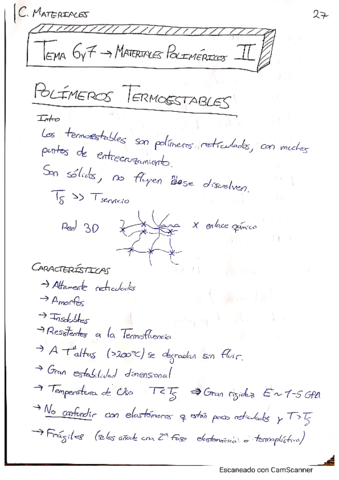 C. MATERIALES
27
TEMA 6 y 7 → MATERIALES POLIMÉRICOS II
POLÍMEROS TERMOESTABLES
Intro
Los termoestables son polímeros reticulados, con muchos
puntos de entrecruzamiento.
Son sólidos, no fluyen se disuelven.
Tg >> T servicio
Red 3D
x enlace químico
CARACTERÍSTICAS
→ Altamente reticulados
→ Amorfos
→ Insolubles
→ Resistentes a la Termofluencia
→ A Tª altas (>200ºC) se degradan sin fluir.
→ Gran estabilidad dimensional
→ Temperatura de Uso T<Tg → Gran rigidez E ~ 1-5 GPa
→ No confundir con elastómeros q están poco reticulados y T>Tg
→ Frágiles (se les añade una 2ª Fase elastomérica o termoplástica)
Escaneado con CamScanner